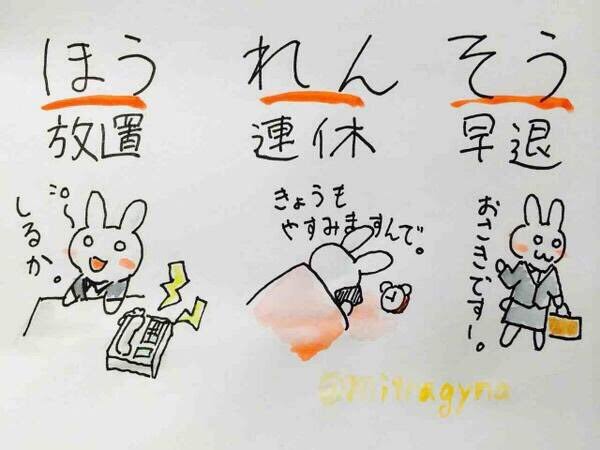 ほう れん そう
放置 連休 早退
しるか。
きょうも
やすみますんで。
おさきですー。
@mitragyna